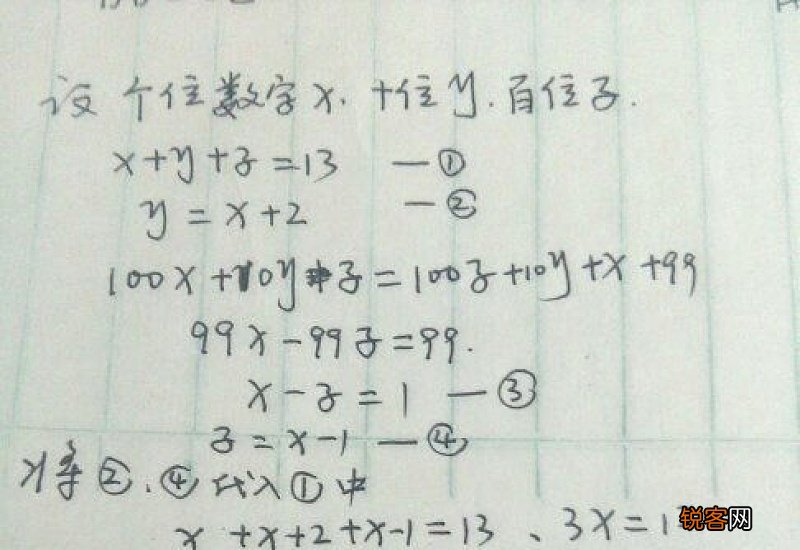 设个位数字x.十位y.百位z.
x+y+z=13 —①
y=x+2 —②
100x+10y+z=100z+10y+x+99
99x-99z=99.
x-z=1 —③
z=x-1 —④
将②、④代入①中
x+x+2+x-1=13、3x=1
锐客网